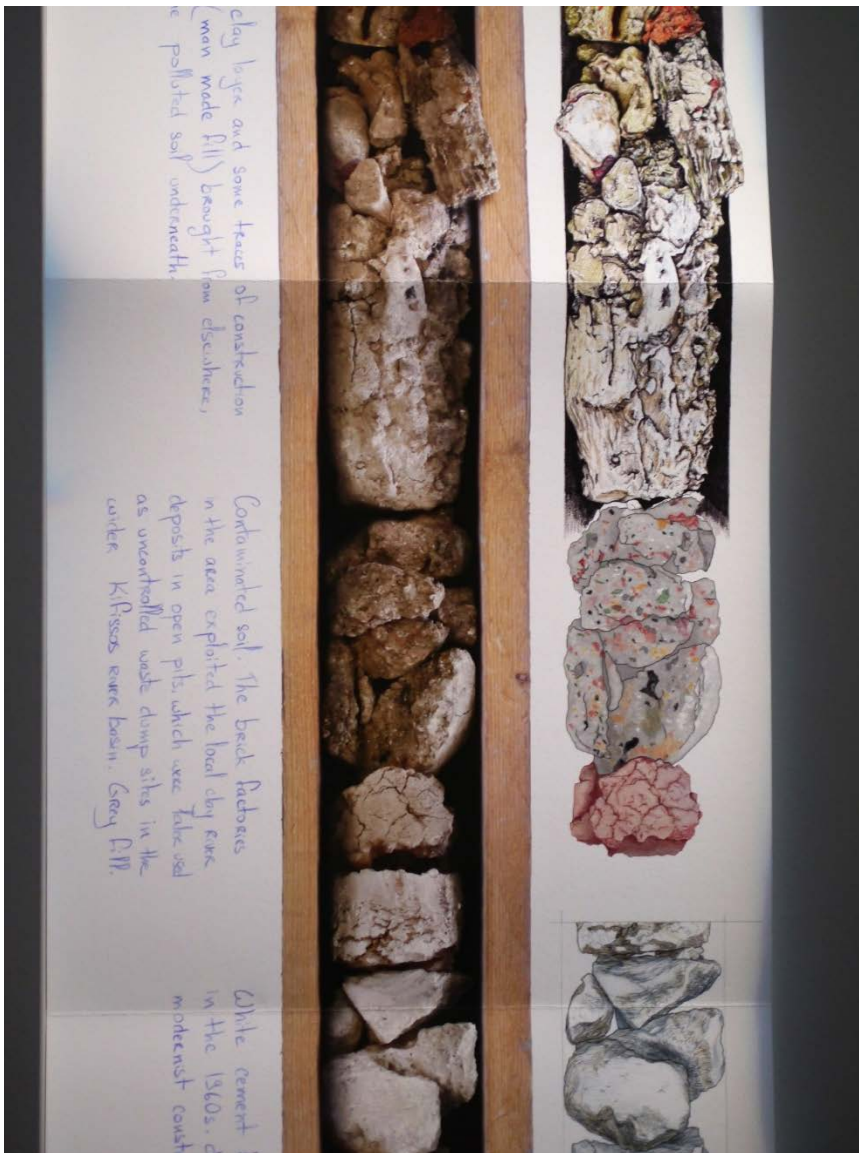 clay layer and some traces of construction
(man made fill) brought from elsewhere,
polluted soil underneath.
Contaminated soil. The brick factories
in the area exploited the local clay river
deposits in open pits, which were later used
as uncontrolled waste dump sites in the
wider Kifissos River basin. Grey fill.
White cement
in the 1960s.
modernist